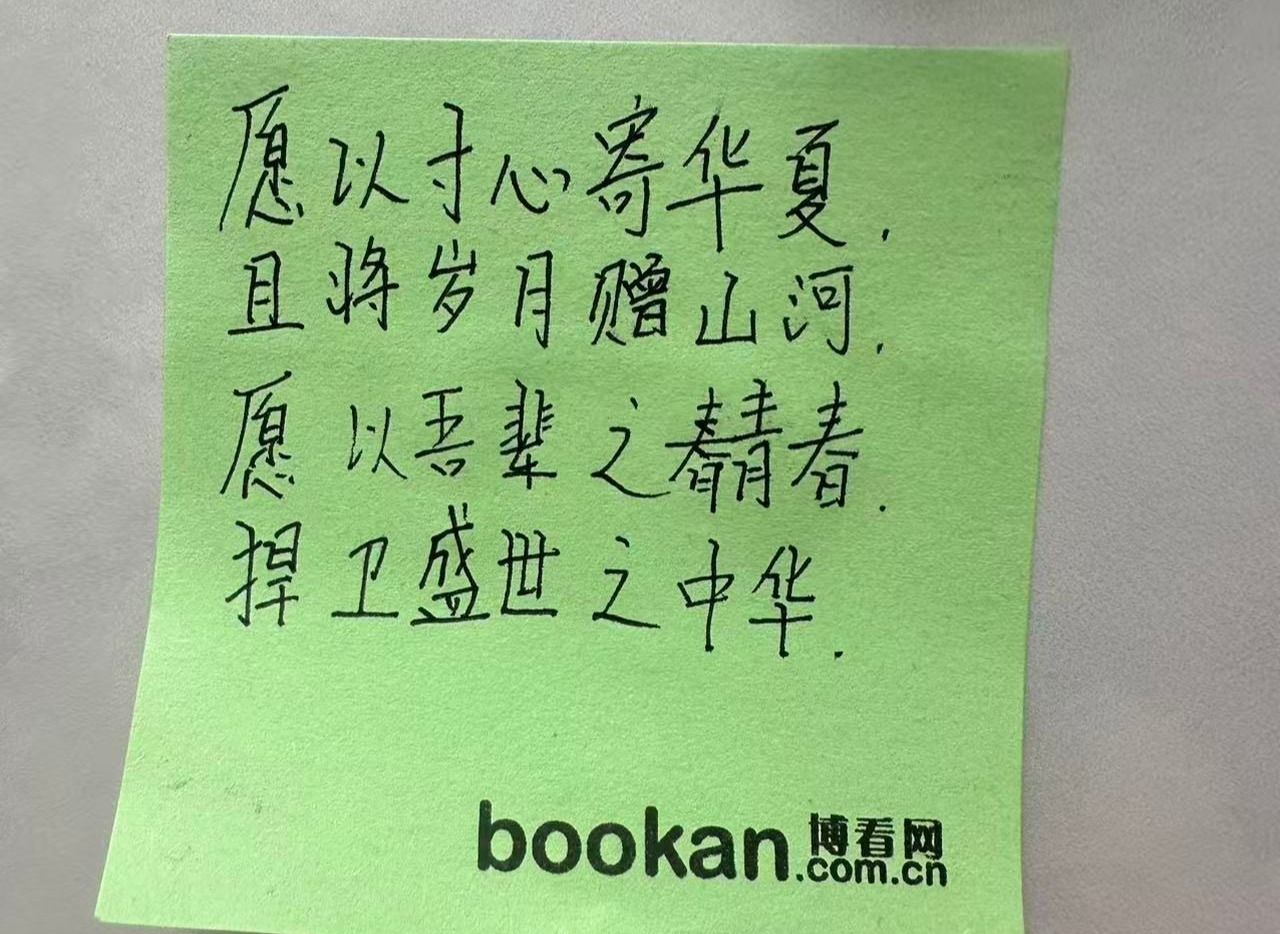 愿以寸心寄华夏.
且将岁月赠山河.
愿以吾辈之青春.
捍卫盛世之中华.
bookan.com.cn
博看网